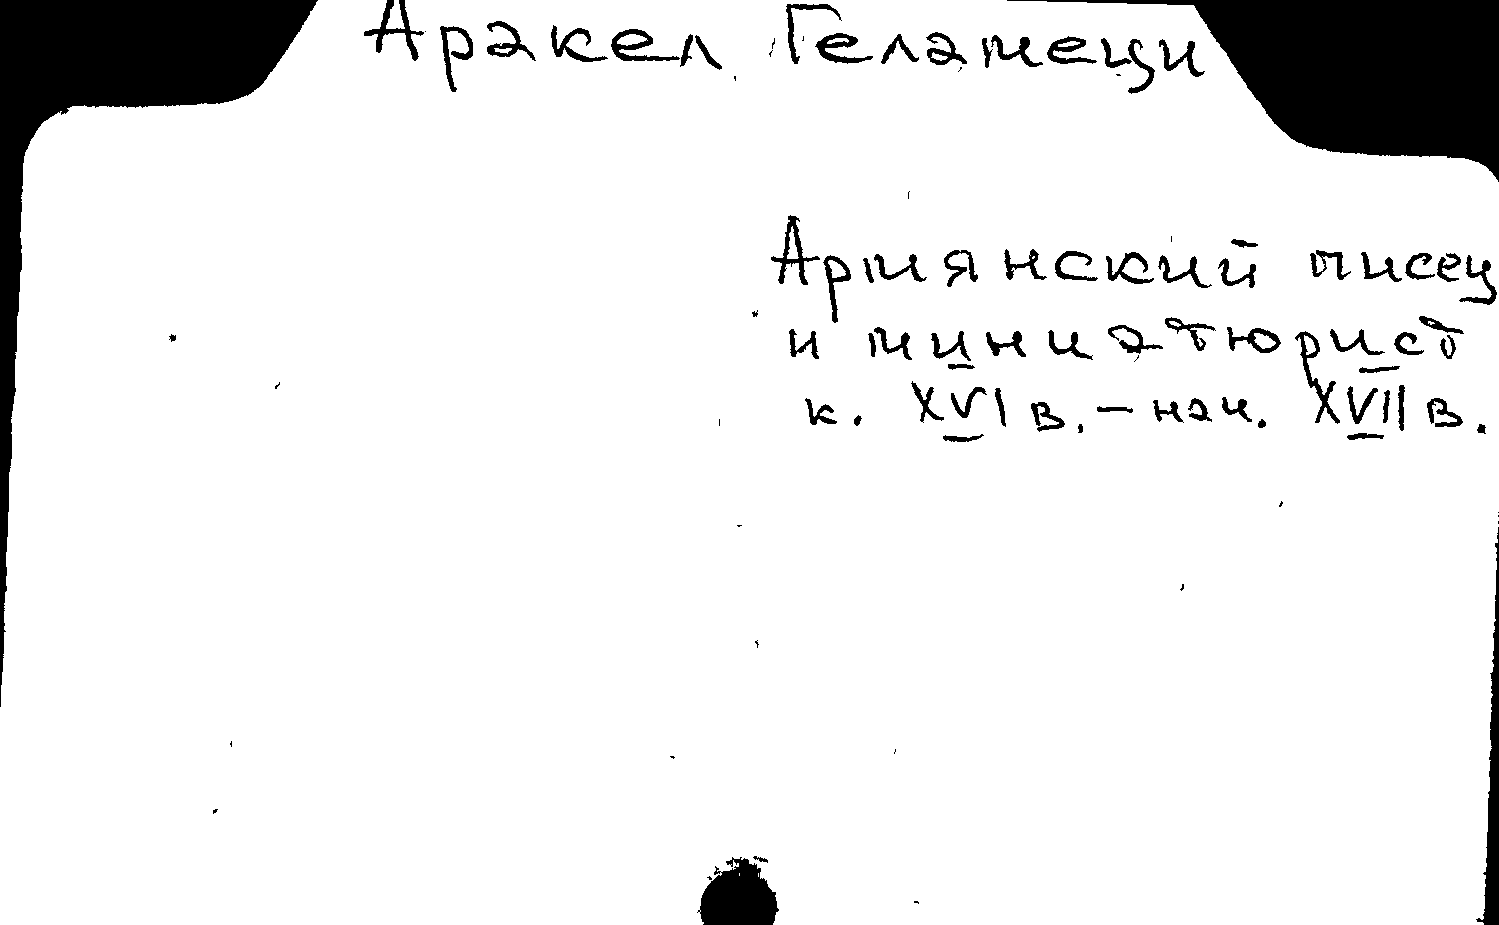 Аракел Геламеци
Армянский писец
и миниатюрист
к. XVI в. – нач. XVII в.